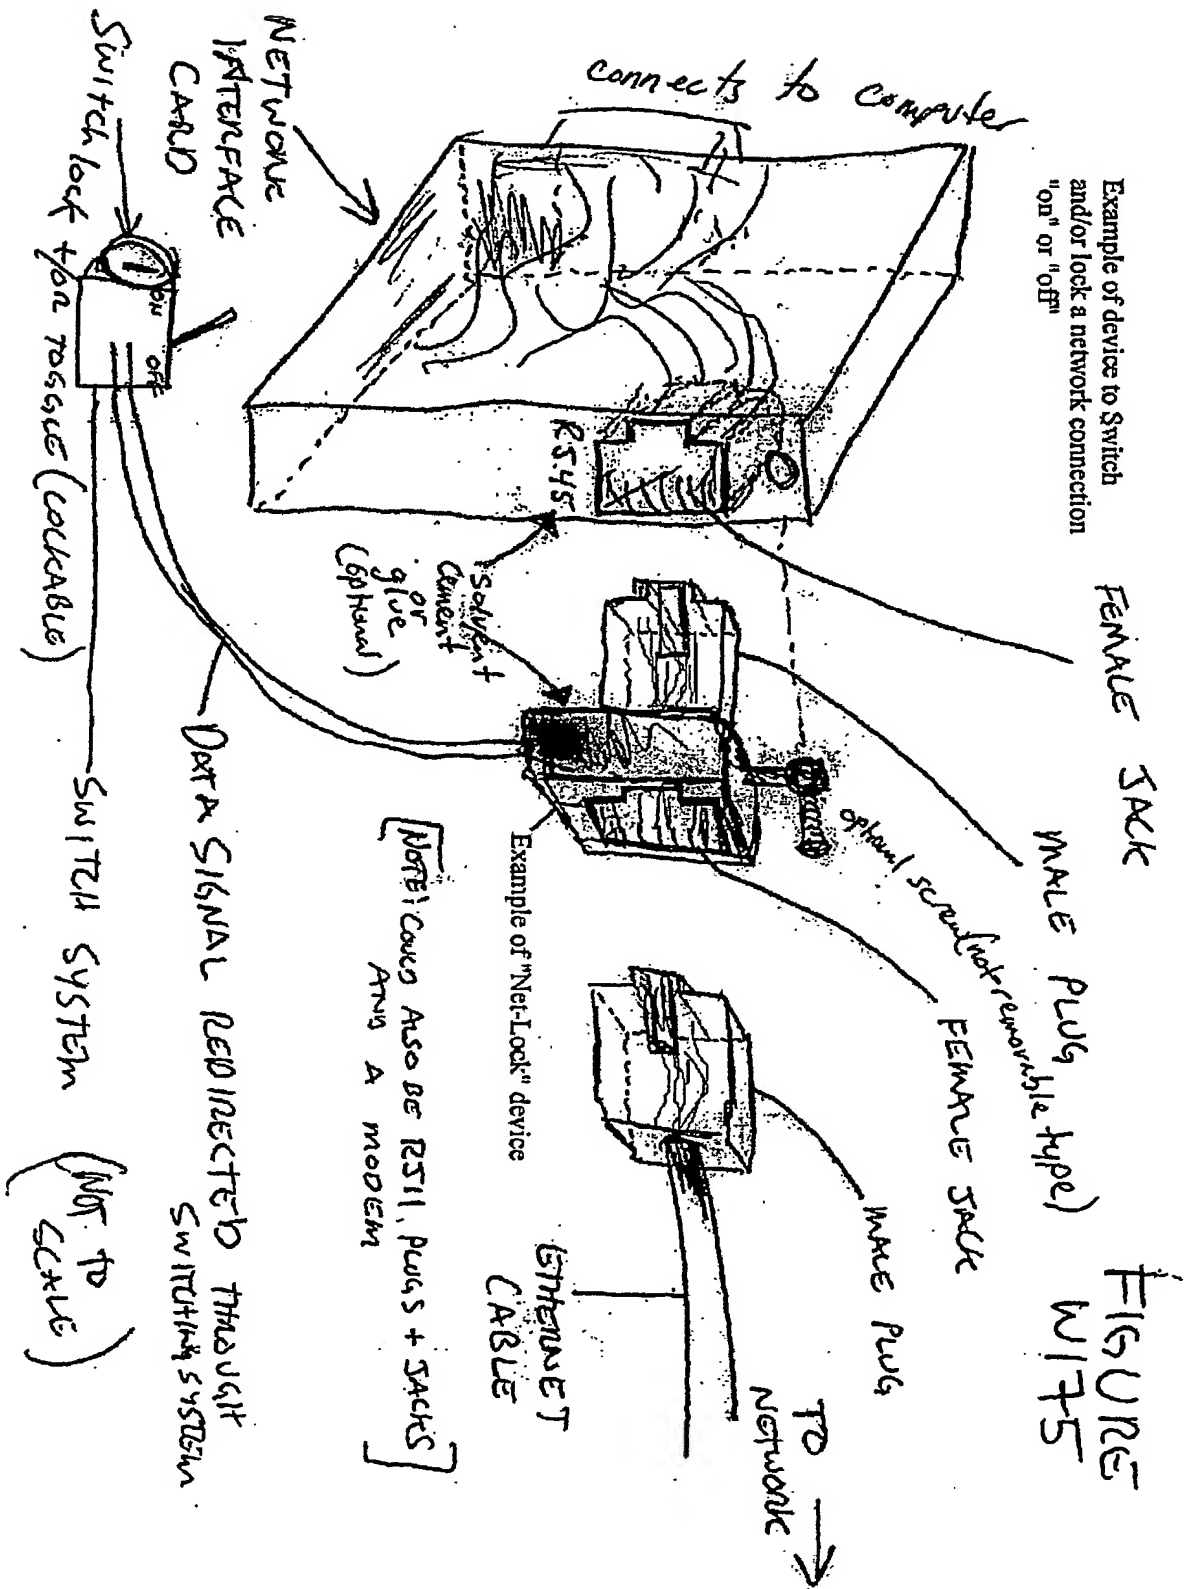 FIGURE
W175
Example of device to Switch
and/or lock a network connection
"on" or "off"
connects to computer
NETWORK
INTERFACE
CARD
RJ45
FEMALE JACK
MALE PLUG
optional screw (not-removable type)
FEMALE JACK
MALE PLUG
TO
NETWORK
ETHERNET
CABLE
Solvent
Cement
or
glue
(optional)
Example of "Net-Lock" device
[NOTE: COULD ALSO BE RJ11, PLUGS + JACKS
AND A MODEM]
ON
OFF
Switch lock +/or TOGGLE (LOCKABLE)
DATA SIGNAL REDIRECTED THROUGH
SWITCHING SYSTEM
SWITCH SYSTEM
(NOT TO
SCALE)